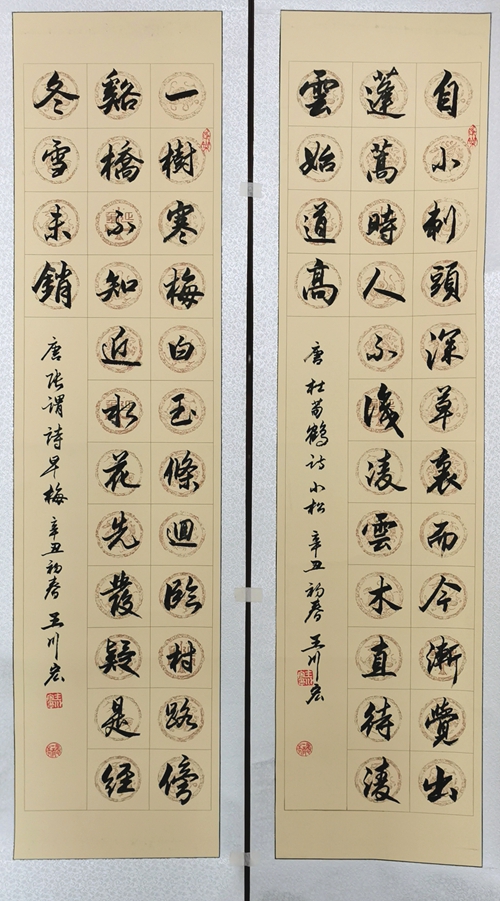 自小刺頭深草裏而今漸覺出
蓬蒿時人不識凌雲木直待凌
雲始道高
唐杜荀鶴詩小松 辛丑初春 王川宏
一樹寒梅白玉條迴臨村路傍
谿橋不知近水花先發疑是經
冬雪未銷
唐張謂詩早梅 辛丑初春 王川宏